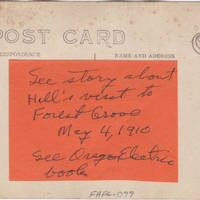 POST CARD
RESPONDENCE NAME AND ADDRESS
See story about
Hill's visit to
Forest Grove
May 4, 1910
See Oregon Electric
book
FHFG-099